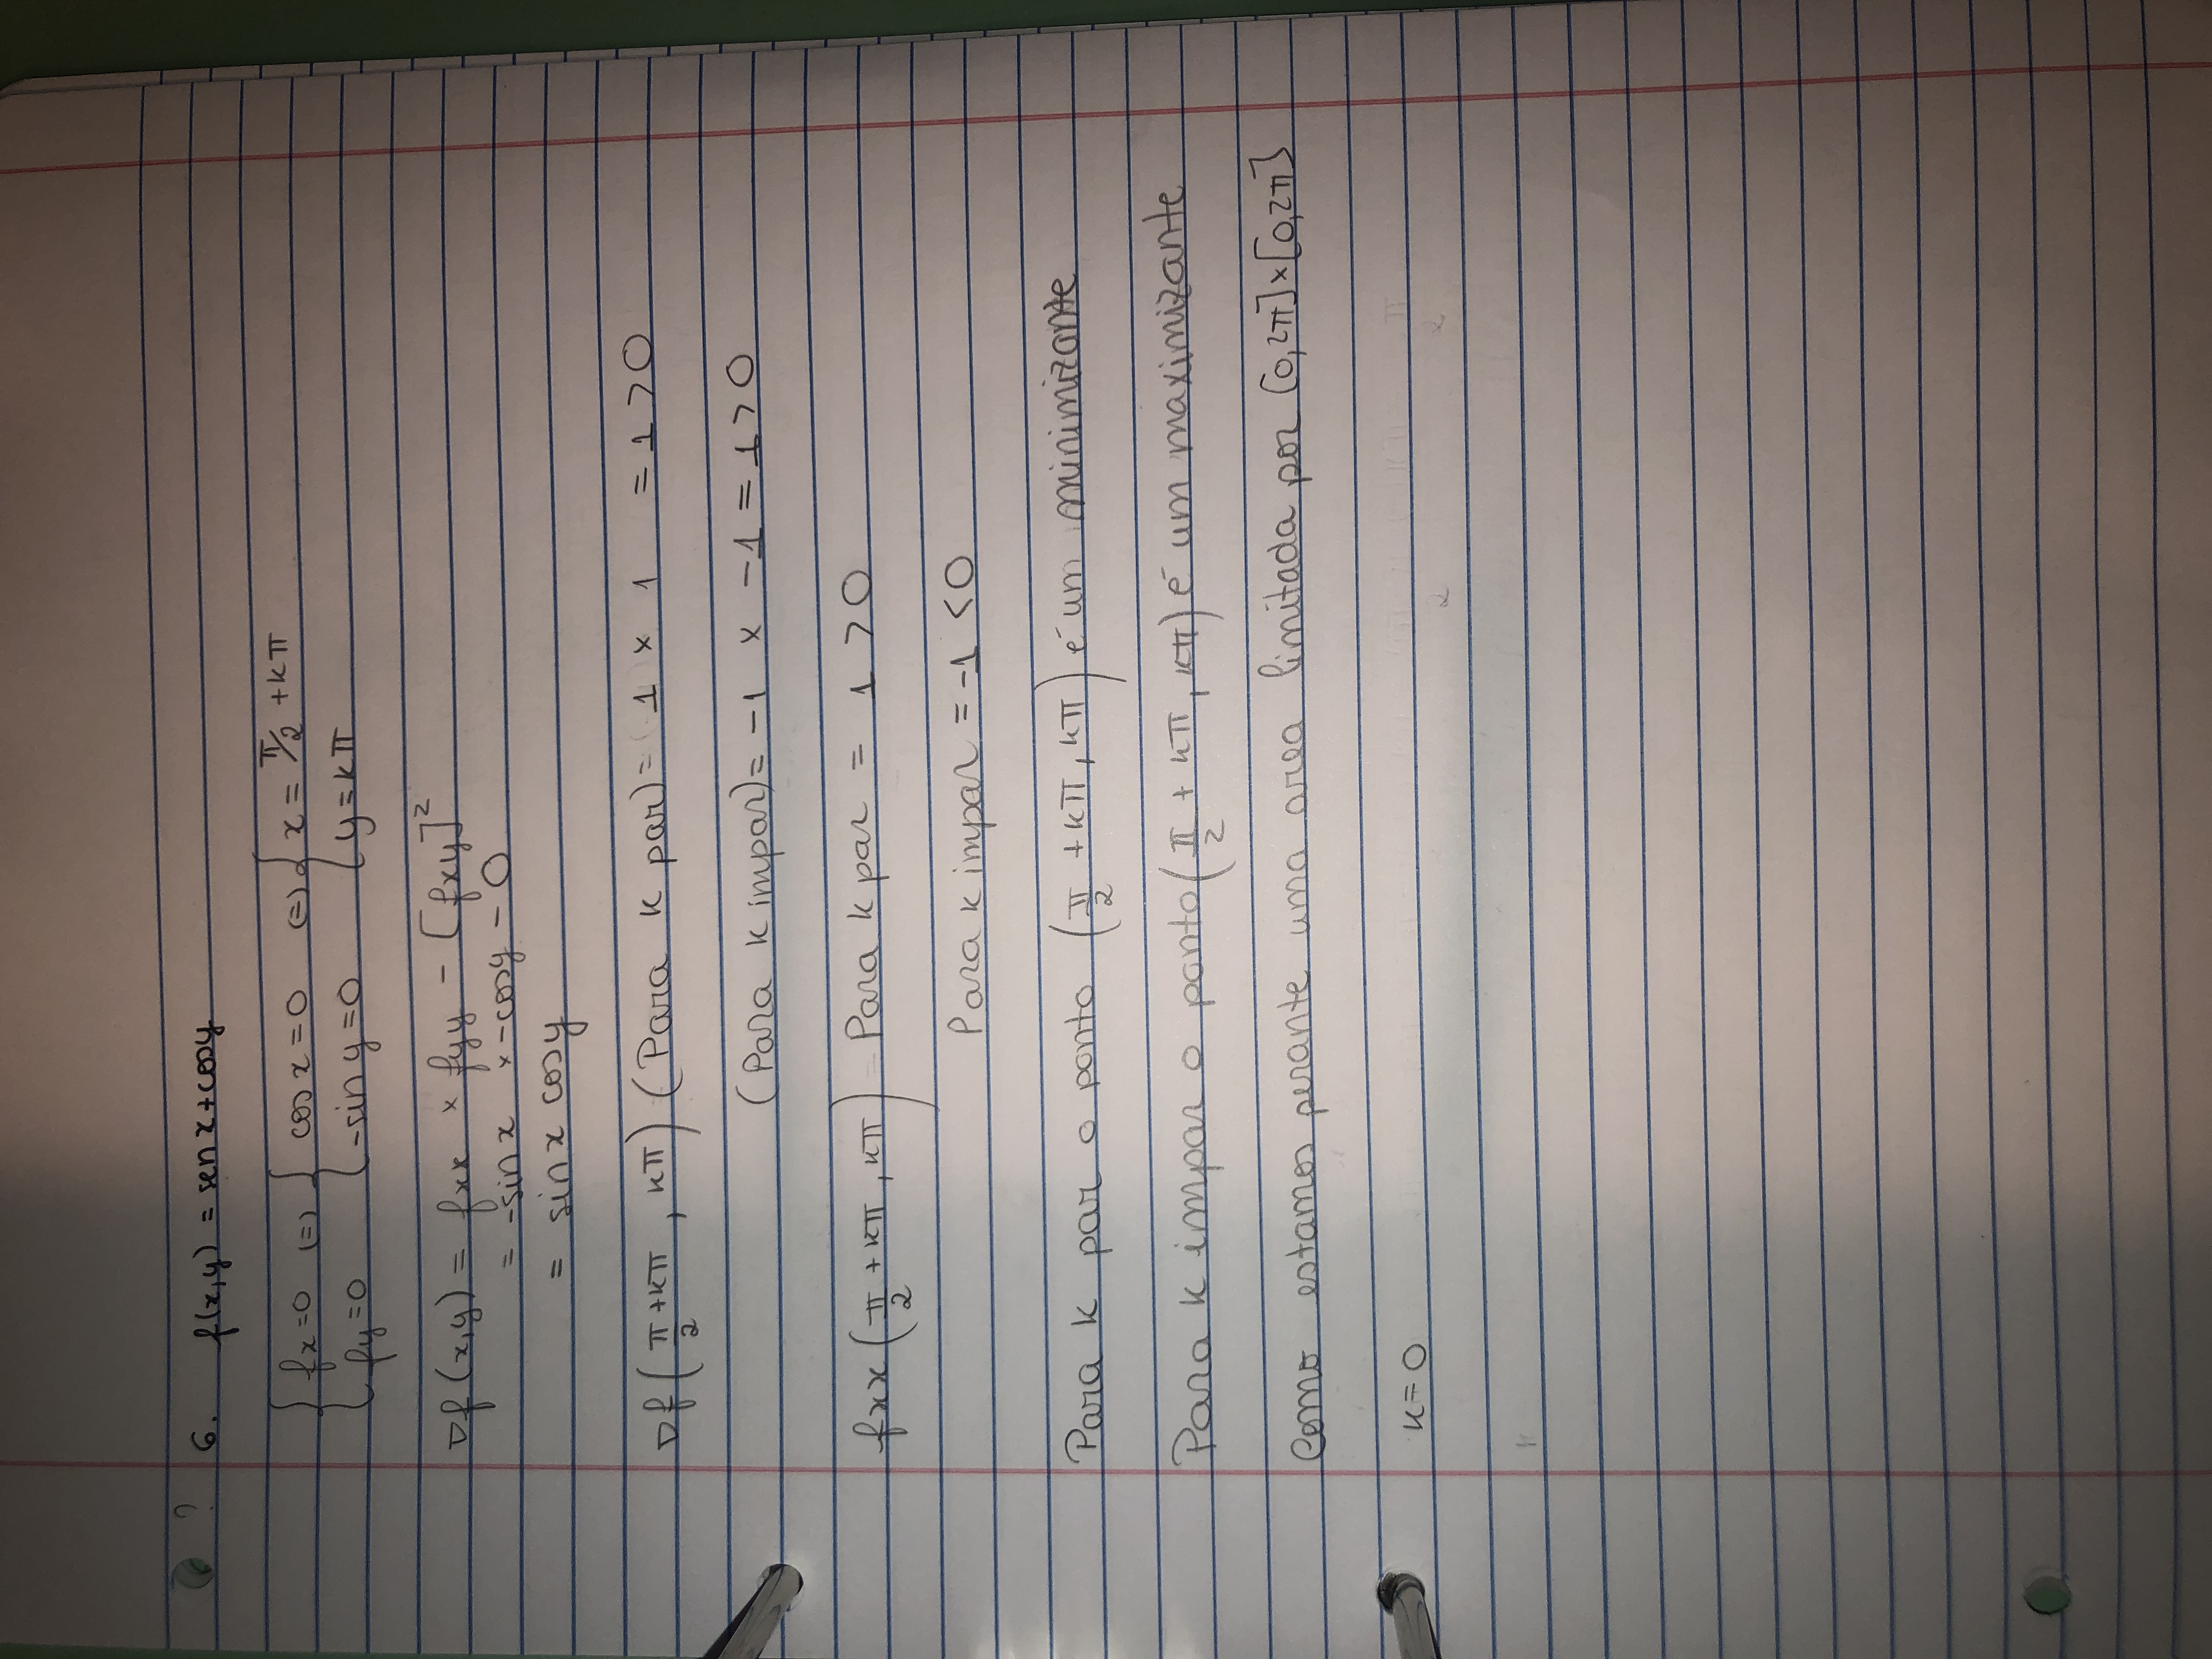 ? 6. f(x,y) = sen x + cos y
{ fx=0 (=) { cos x = 0 (=) { x = π/2 + kπ
fy=0 -sin y = 0 y = kπ
∇f (x,y) = fxx × fyy - [fxy]²
= -sin x × -cos y - 0
= sin x cos y
∇f (π/2 + kπ, kπ) (Para k par) = 1 × 1 = 1 > 0
(Para k impar) = -1 × -1 = 1 > 0
fxx (π/2 + kπ, kπ) Para k par = 1 > 0
Para k impar = -1 < 0
Para k par o ponto (π/2 + kπ, kπ) é um minimizante
Para k impar o ponto (π/2 + kπ, kπ) é um maximizante
Como estamos perante uma area limitada por [0,2π]×[0,2π]
k = 0